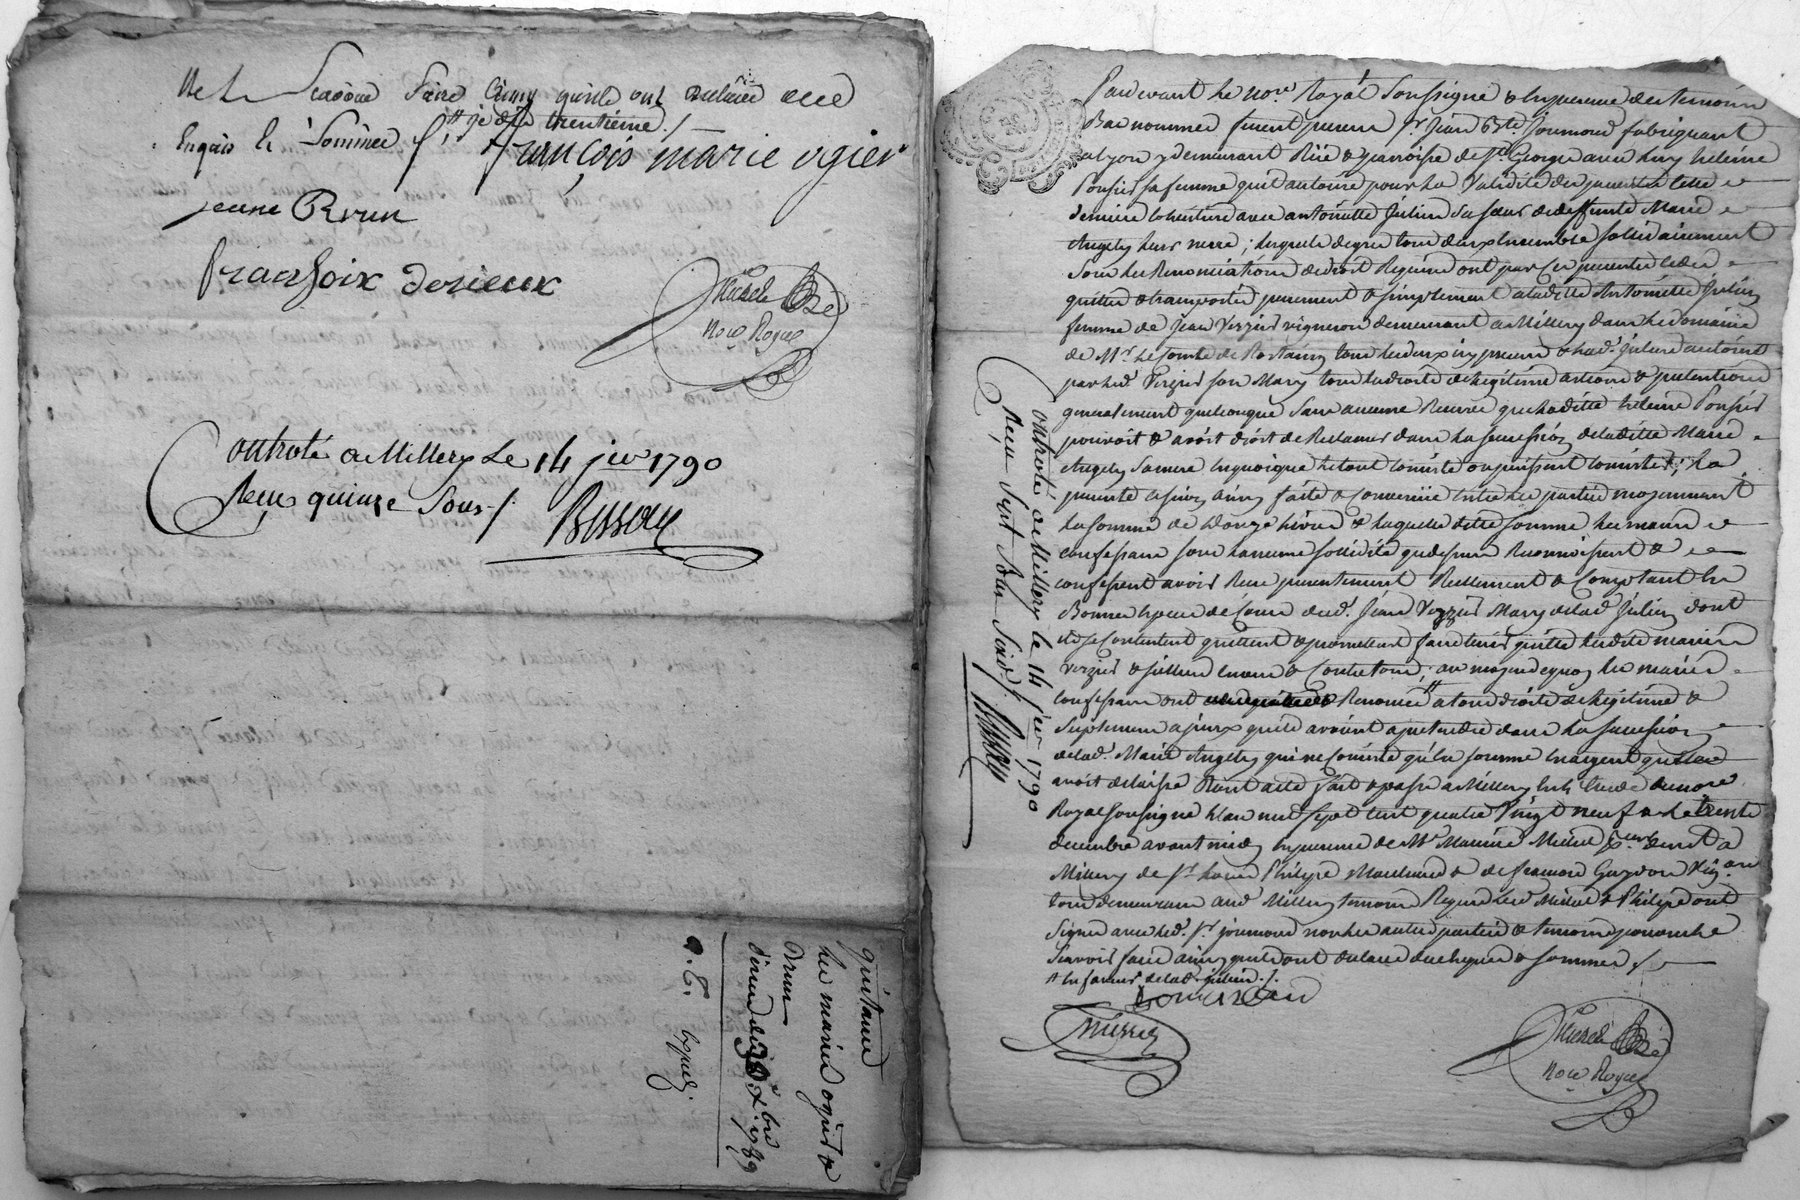 ne le Scavoir faire ainsy qu'ils ont
Enquis & Sommés
trentième
françois marie ogier
jeune Brun
fransoix derieux
Michel
No.re Royal
Controlé a Millery Le 14 jer 1790
Reçu quinze Sous
Besson
quittance
les mariés ogier &
Brun
du 30 Xbre 1789
Pardevant Le no.re Royal Soussigné & En presence des temoins
Bas nommés furent presens Sr Jean Bte. joumond fabriquant
a Lyon y demeurant Rüe & parroisse de St George avec heleine
Ponsier sa femme qu'il autorise pour La Validité des presentes cette
derniere coheritiere avec antoinette Julien Sa Sœur de deffunte Marie
Angely leur mere ; lesquels de gré tous deux Ensemble sollidairement
Sous les Renonciations de droit Requises ont par Ces presentes
quitté & transporté purement & simplement a laditte Antoinette Julien
femme de Jean Verzier vigneron demeurant a Millery dans le domaine
de Mr. Le Comte de tous les deux icy presens & lad. Julien autorisée
par led. Verzier son Mary tous les droits de Legitime actions & pretentions
generalement quelconque Sans aucune Reserve que laditte heleine Ponsier
pouvoit & avoit droit de Reclamer dans la succession de laditte Marie
Angely Sa mere en quoique le tout consiste ou puissent consister ; La
presente cession ainsy faite & Convenüe Entre les parties moyennant
La somme de Douze Livres & laquelle ditte somme les mariés
confessans sous la meme sollidité que dessus Reconnoissent &
confessent avoir Reçu presentement Reellement & Comptant En
Bonnes Especes de Cours dud. Jean Verzier Mary de lad. Julien dont
ils se Contentent quittent & promettent faire tenir quitte lesdits mariés
Verzier & Jullien envers & Contre tous ; au moyen de quoy les mariés
confessans ont Renoncé a tous droits de Legitime &
Suplement a jceux qu'ils avoient a pretendre dans la succession
de lad. Marie Angely qui ne Consiste qu'en somme En argent qu'elle
avoit delaissé Dont acte fait & passé a Millery En L'Etude du no.re
Royal soussigné L'an mil sept cent quatre Vingt neuf & Le trente
decembre avant midy En presence de Me Maurice Michel
Millery de St. Philipe & de Guyon Vig.on
tous demeurans aud. Millery temoins Requis Led. Michel & Philipe ont
Signé avec led. Sr joumond non les autres parties & temoins pour ne le
Scavoir faire ainsy qu'ils ont declaré de ce Enquis & sommés
En faveur de lad. Julien
Michel
No.re Royal
Controlé a Millery le 14 jer 1790
Reçu Sept Sous Six d.
Besson